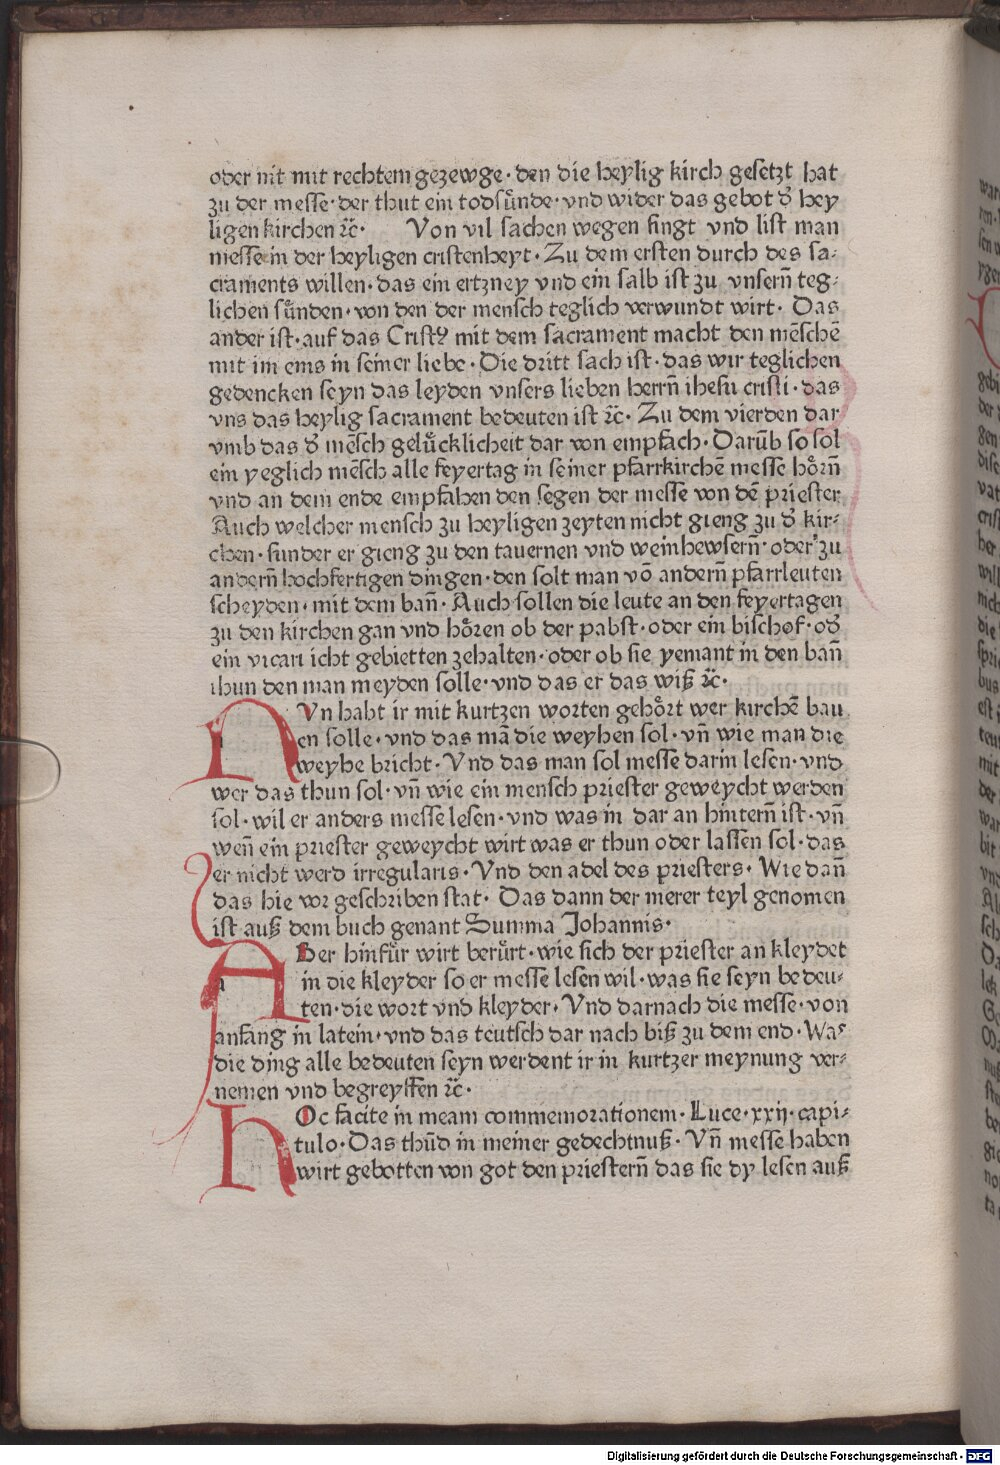 oder nit mit rechtem gezewge · den die heylig kirch gesetzt hat
zu der messe · der thut ein todsůnde · vnd wider das gebot d̕ hey
ligen kirchen ⁊c̃ · Von vil sachen wegen singt vnd list man
messe in der heyligen cristenheyt · Zu dem ersten durch des sa⸗
craments willen · das ein ertzney vnd ein salb ist zu vnsern̄ teg⸗
lichen sůnden · von den der mensch teglich verwundt wirt · Das
ander ist · auf das Cristꝰ mit dem sacrament macht den mēschē
mit im eins in seiner liebe · Die dritt sach ist · das wir teglichen
gedencken seyn das leyden vnsers lieben herrn̄ ihesu cristi · das
vns das heylig sacrament bedeuten ist ⁊c̃ · Zu dem vierden dar
vmb das d̕ mēsch gelůcklicheit dar von empfach · Darūb so sol
ein yeglich mēsch alle feyertag in seiner pfarrkirchē messe hoͤrn̄
vnd an dem ende empfahen den segen der messe von dē priester
Auch welcher mensch zu heyligen zeyten nicht gieng zu d̕ kir⸗
chen · sunder er gieng zu den tauernen vnd weinhewsern̄ · oder zu
andern̄ hochfertigen dingen · den solt man vō andern̄ pfarrleuten
scheyden · mit dem ban̄ · Auch sollen die leute an den feyertagen
zu den kirchen gan vnd hoͤren ob der pabst · oder ein bischof · od̕
ein vicari icht gebietten zehalten · oder ob sie yemant in den ban̄
thun den man meyden solle · vnd das er das wiß ⁊c̃ ·
NVn habt ir mit kurtzen worten gehoͤrt wer kirchē bau
en solle · vnd das mā die weyhen sol · vn̄ wie man die
weyhe bricht · Vnd das man sol messe darin lesen · vnd
wer das thun sol · vn̄ wie ein mensch priester geweycht werden
sol · wil er anders messe lesen · vnd was in dar an hintern̄ ist · vn̄
wen̄ ein priester geweycht wirt was er thun oder lassen sol · das
er nicht werd irregularis · Vnd den adel des priesters · Wie dan̄
das hie vor geschriben stat · Das dann der merer teyl genomen
ist auß dem buch genant Summa Johannis ·
ABer hinfůr wirt berůrt · wie sich der priester an kleydet
in die kleyder so er messe lesen wil · was sie seyn bedeu⸗
ten · die wort vnd kleyder · Vnd darnach die messe · von
anfang in latein · vnd das teutsch dar nach biß zu dem end · Was
die ding alle bedeuten seyn werdent ir in kurtzer meynung ver⸗
nemen vnd begreyffen ⁊c̃ ·
HOc facite in meam commemorationem · Luce · xxij · capi⸗
tulo · Das thūd in meiner gedechtnuß · Vn̄ messe haben
wirt gebotten von got den priestern̄ das sie dy lesen auß
Digitalisierung gefördert durch die Deutsche Forschungsgemeinschaft - DFG